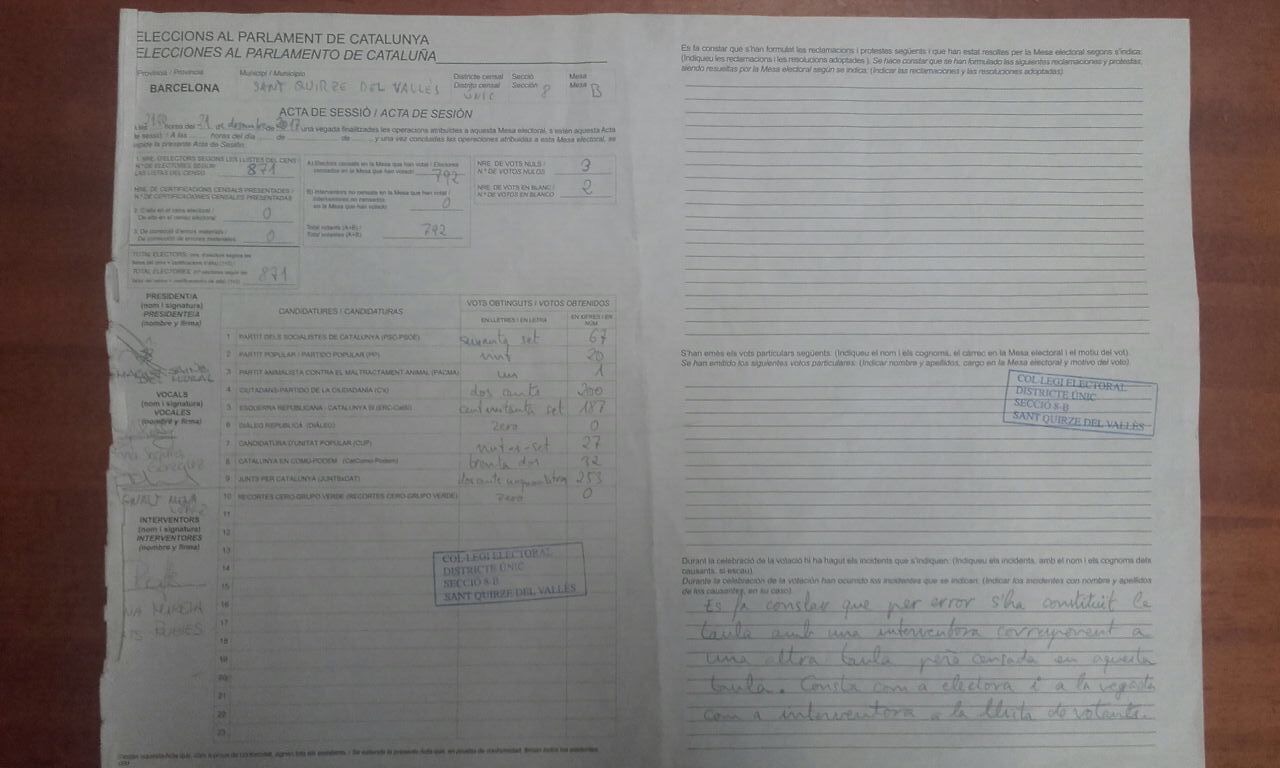 ELECCIONS AL PARLAMENT DE CATALUNYA
ELECCIONES AL PARLAMENTO DE CATALUÑA
Província / Provincia
BARCELONA
Municipi / Municipio
SANT QUIRZE DEL VALLÈS
Districte censal
Distrito censal
ÚNIC
Secció
Sección 8
Mesa
Mesa B
ACTA DE SESSIÓ / ACTA DE SESIÓN
hores del 21 de desembre de 2017 una vegada finalitzades les operacions atribuïdes a aquesta Mesa electoral, s'estén aquesta Acta
de sessió. / A las ...... horas del día ...... de ...... de ...... y una vez concluidas las operaciones atribuidas a esta Mesa electoral, se
expide la presente Acta de Sesión.
1. NRE. D'ELECTORS SEGONS LES LLISTES DEL CENS /
N.º DE ELECTORES SEGÚN
LAS LISTAS DEL CENSO 871
NRE. DE CERTIFICACIONS CENSALS PRESENTADES /
N.º DE CERTIFICACIONES CENSALES PRESENTADAS
2. D'alta en el cens electoral /
De alta en el censo electoral 0
3. De correcció d'errors materials /
De corrección de errores materiales 0
TOTAL ELECTORS:
TOTAL ELECTORES: 871
A) Electors censats en la Mesa que han votat / Electores
censados en la Mesa que han votado 792
B) Interventors no censats en la Mesa que han votat /
Interventores no censados
en la Mesa que han votado 0
Total votants (A+B) /
Total votantes (A+B) 792
NRE. DE VOTS NULS /
N.º DE VOTOS NULOS 3
NRE. DE VOTS EN BLANC /
N.º DE VOTOS EN BLANCO 2
PRESIDENT/A
(nom i signatura)
PRESIDENTE/A
(nombre y firma)
DEL MORAL
VOCALS
(nom i signatura)
VOCALES
(nombre y firma)
INTERVENTORS
(nom i signatura)
INTERVENTORES
(nombre y firma)
CANDIDATURES / CANDIDATURAS
VOTS OBTINGUTS / VOTOS OBTENIDOS
EN LLETRES / EN LETRA
EN XIFRES / EN NÚM.
1 PARTIT DELS SOCIALISTES DE CATALUNYA (PSC-PSOE) seixanta set 67
2 PARTIT POPULAR / PARTIDO POPULAR (PP) vint 20
3 PARTIT ANIMALISTA CONTRA EL MALTRACTAMENT ANIMAL (PACMA) un 1
4 CIUTADANS-PARTIDO DE LA CIUDADANÍA (C's) dos cents 200
5 ESQUERRA REPUBLICANA - CATALUNYA SÍ (ERC-CatSí) cent vuitanta set 187
6 DIÀLEG REPÚBLICA (DIÀLEG) zero 0
7 CANDIDATURA D'UNITAT POPULAR (CUP) vint-i-set 27
8 CATALUNYA EN COMÚ-PODEM (CatComú-Podem) trenta dos 32
9 JUNTS PER CATALUNYA (JUNTSxCAT) dos cents cinquanta tres 253
10 RECORTES CERO-GRUPO VERDE (RECORTES CERO-GRUPO VERDE) zero 0
11
12
13
14
15
16
17
18
19
20
21
22
23
COL·LEGI ELECTORAL
DISTRICTE ÚNIC
SECCIÓ 8-B
SANT QUIRZE DEL VALLÈS
Es fa constar que s'han formulat les reclamacions i protestes següents i que han estat resoltes per la Mesa electoral segons s'indica:
(Indiqueu les reclamacions i les resolucions adoptades). Se hace constar que se han formulado las siguientes reclamaciones y protestas,
siendo resueltas por la Mesa electoral según se indica: (Indicar las reclamaciones y las resoluciones adoptadas).
S'han emès els vots particulars següents. (Indiqueu el nom i els cognoms, el càrrec en la Mesa electoral i el motiu del vot).
Se han emitido los siguientes votos particulares. (Indicar nombre y apellidos, cargo en la Mesa electoral y motivo del voto).
COL·LEGI ELECTORAL
DISTRICTE ÚNIC
SECCIÓ 8-B
SANT QUIRZE DEL VALLÈS
Durant la celebració de la votació hi ha hagut els incidents que s'indiquen: (Indiqueu els incidents, amb el nom i els cognoms dels
causants, si escau).
Durante la celebración de la votación han ocurrido los incidentes que se indican. (Indicar los incidentes con nombre y apellidos
de los causantes, en su caso).
Es fa constar que per error s'ha constituït la
taula amb una interventora corresponent a
una altra taula però censada en aquesta
taula. Consta com a electora i a la vegada
com a interventora a la llista de votants.